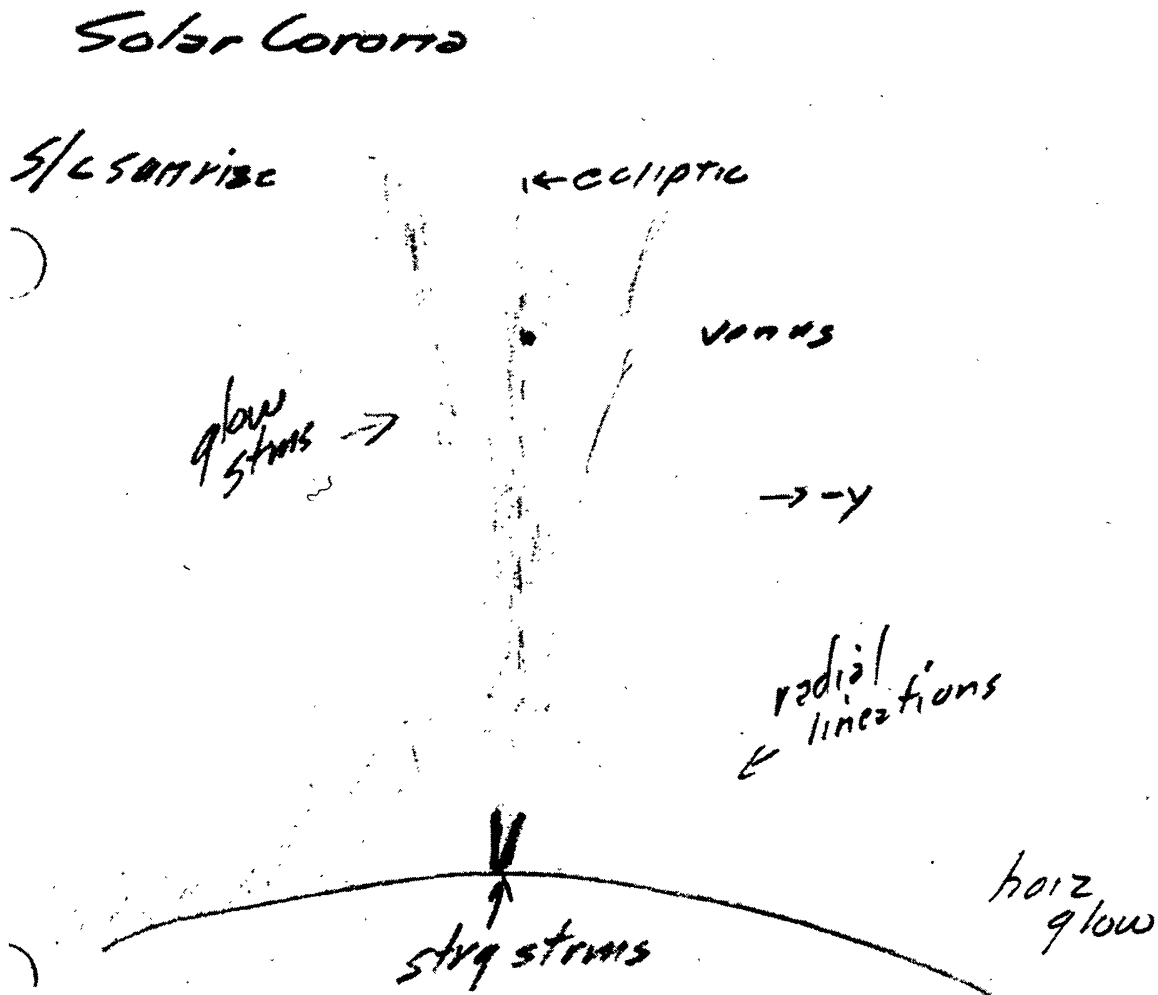 Solar Corona
S/C sunrise
← ecliptic
Venus
glow
strms →
→ -y
radial
lineations
horz
glow
strg strms